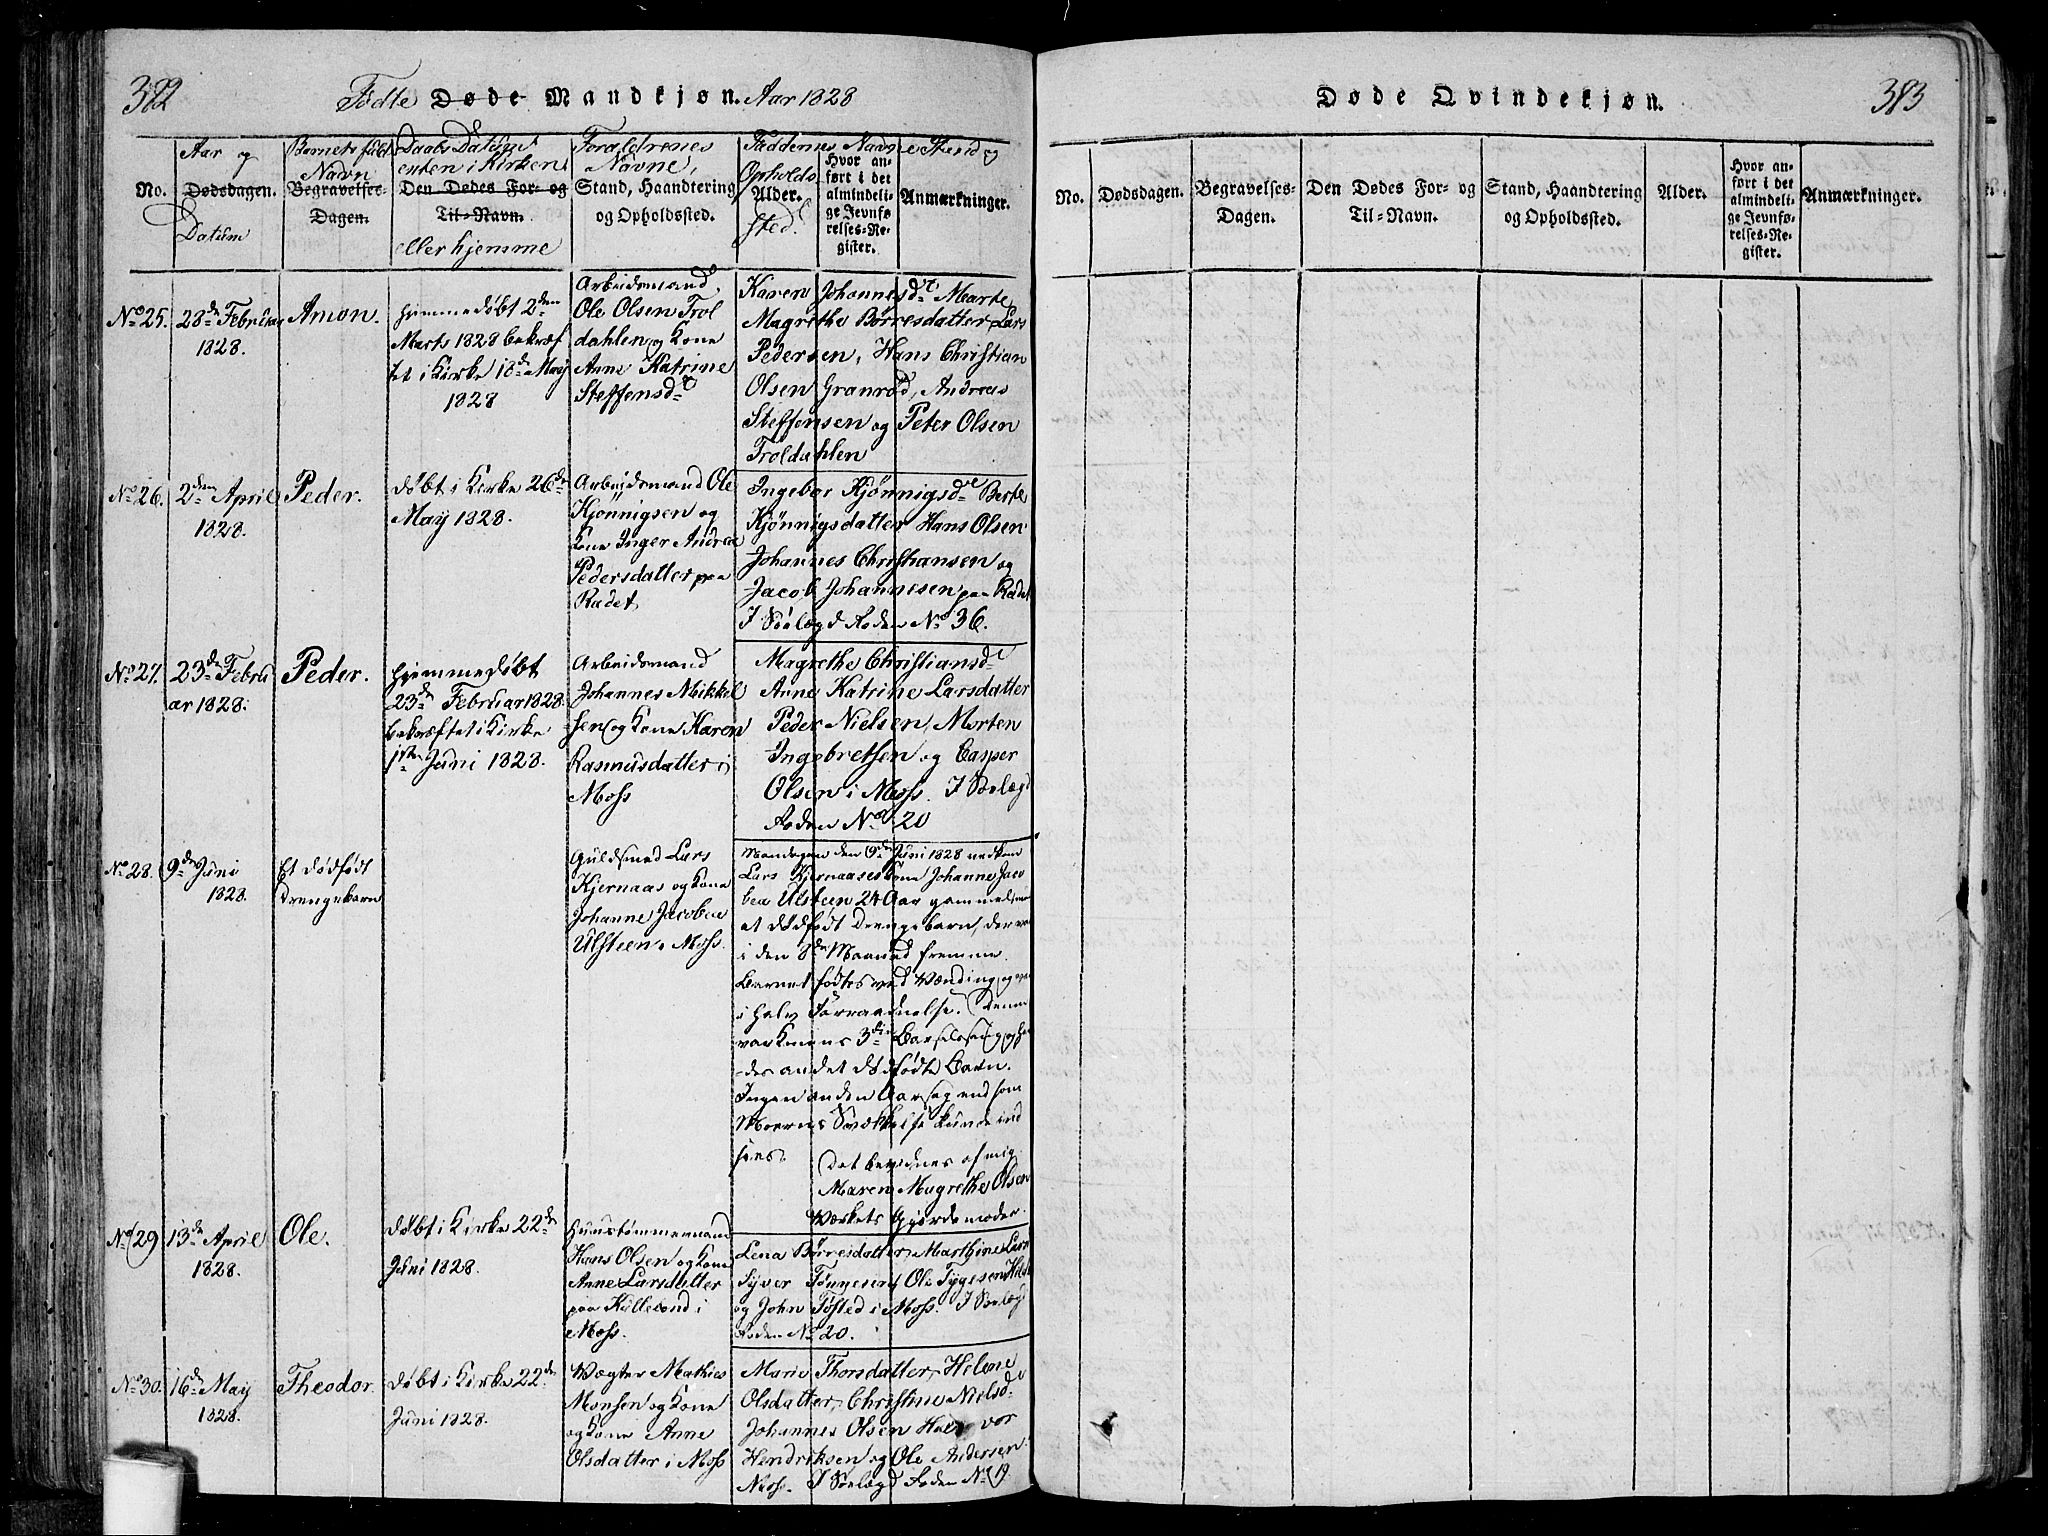 382
Fødte Døde Mandkjøn. Aar 1828
No.
Aar og
Dødsdagen.
Datum
Barnets fulde
Navn
Begravelses-
Dagen.
Daabs Datum
enten i Kirken
Den Dødes For- og
Til-Navn.
eller hjemme
Forældrenes
Navne,
Stand, Haandtering
og Opholdssted.
Faddernes Navne Stand og
Opholds
Alder.
sted.
Hvor an-
ført i det
almindeli-
ge Jevnfø-
relses-Re-
gister.
Anmærkninger.
No 25.
28de Februar
1828.
Amon.
hjemmedøbt 2den
Marts 1828 bekræf
tet i Kirke 18de May
1828
Arbeidsmand
Ole Olsen Trol
dahlen og Kone
Anne Katrine
Steffensdr
Karen Johannesdr Marte
Magrethe Børresdatter Lars
Pedersen, Hans Christian
Olsen Granrød, Andreas
Steffensen og Peter Olsen
Troldahlen
No 26.
2den April
1828.
Peder.
døbt i Kirke 26de
May 1828.
Arbeidsmand Ole
Kjønnigsen og
Kone Inger Andrea
Pedersdatter paa
Radet
Ingebor Kjønnigsdr Berte
Kjønnigsdatter Hans Olsen
Johannes Christiansen og
Jacob Johannesen paa Radet
I Sølægd Roden No 36.
No 27.
23de Febru
ar 1828.
Peder.
hjemmedøbt
23de Februar 1828.
bekræftet i Kirke
1ste Juni 1828.
Arbeidsmand
Johannes Mikkel
sen og Kone Karen
Rasmusdatter i
Moss
Magrethe Christiansdr
Anne Katrine Larsdatter
Peder Nielsen, Morten
Ingebretsen og Casper
Olsen i Moss. I Sølægd
Roden No 20
No 28.
9de Juni
1828.
Et dødfødt
Drengebarn
Guldsmed Lars
Kjernaas og Kone
Johanne Jacobea
Ulsteen, Moss.
Mandagen den 9de Juni 1828 nedkom
Lars Kjernaases Kone Johanne Jaco
bea Ulsteen 24 Aar gammel med
et dødfødt Drengebarn, der var
i den 8de Maaned fremme.
Barnet fødtes ved Vending og var
i halv Forraadnelse. Denne
var Konens 3die Barselseng og hen
des andet dødfødte Barn.
Ingen anden Aarsag end som
Moerens Svækkelse kunde ind
sees.
Det bevidnes af mig
Maren Magrethe Olsen
Værkets Gjordemoder.
No 29
13de April
1828.
Ole.
døbt i Kirke 22de
Juni 1828.
Huustømmermand
Hans Olsen og Kone
Anne Larsdatter
paa Kullebund i
Moss.
Lena Børresdatter, Marthine Lars
Syver Tønnesen, Ole Tygesen
og John Tøsted i Moss. I Sølægd
Roden No 20.
No 30.
16de May
1828.
Theodor.
døbt i Kirke 22de
Juni 1828.
Vægter Mathies
Monsen og Kone
og Kone Anne
Olsdatter i Moss
Marie Thorsdatter, Helene
Olsdatter, Christine Nielsdr
Johannes Olsen Halvor
Hendriksen og Ole Andersen
Moss. I Sølægd Roden No 19.
383
Døde Qvindekjøn.
No.
Dødsdagen.
Begravelses-
Dagen.
Den Dødes For- og
Til-Navn.
Stand, Haandtering
og Opholdssted.
Alder.
Hvor an-
ført i det
almindeli-
ge Jevnfø-
relses-Re-
gister.
Anmærkninger.